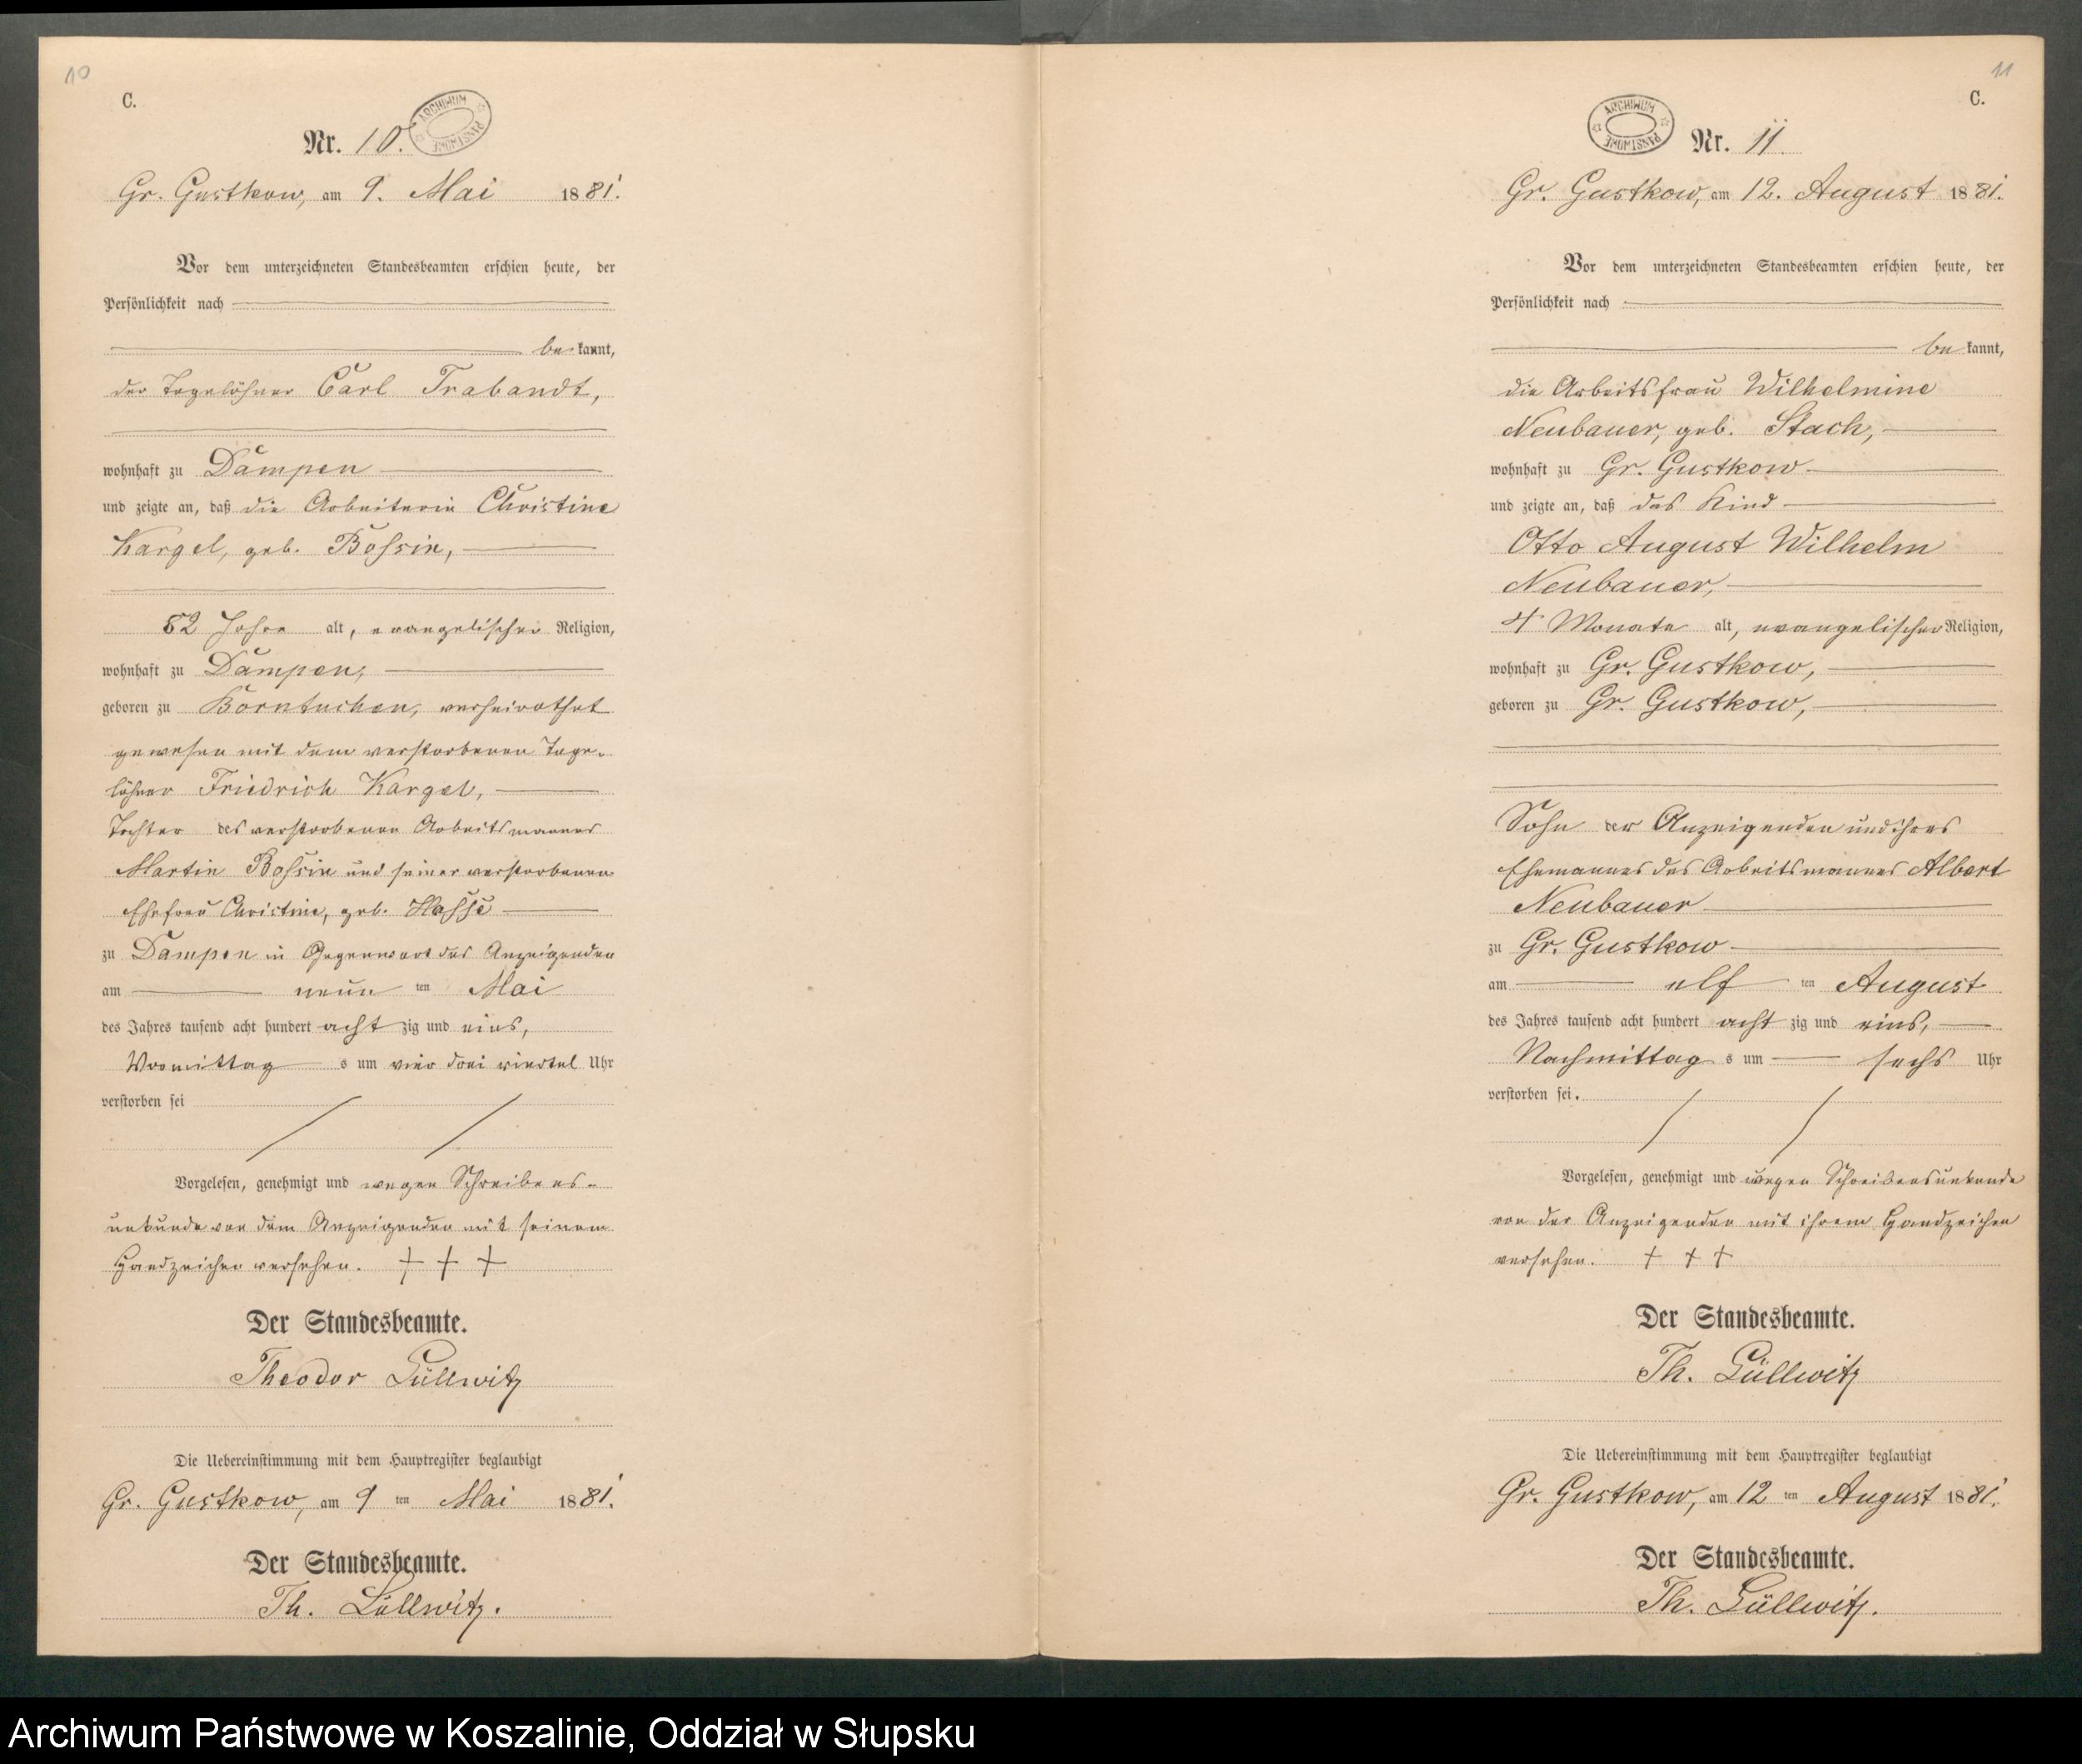 10
C.
Nr. 10.
ARCHIWUM PAŃSTWOWE
Gr. Gustkow, am 9. Mai 1881.
Vor dem unterzeichneten Standesbeamten erschien heute, der
Persönlichkeit nach
be kannt,
der Tagelöhner Carl Trabandt,
wohnhaft zu Dampen
und zeigte an, daß die Arbeiterin Christine
Kargel, geb. Bossin,
82 Jahre alt, evangelischer Religion,
wohnhaft zu Dampen,
geboren zu Borntuchen, verheirathet
gewesen mit dem verstorbenen Tage-
löhner Friedrich Kargel,
Tochter des verstorbenen Arbeitsmannes
Martin Bossin und seiner verstorbenen
Ehefrau Christine, geb. Hasse
zu Dampen in Gegenwart des Anzeigenden
am neun ten Mai
des Jahres tausend acht hundert acht zig und eins,
Vormittag s um vier drei viertel Uhr
verstorben sei
Vorgelesen, genehmigt und wegen Schreibens-
unkunde von dem Anzeigenden mit seinem
Handzeichen versehen. + + +
Der Standesbeamte.
Theodor Lüllwitz
Die Uebereinstimmung mit dem Hauptregister beglaubigt
Gr. Gustkow, am 9 ten Mai 1881.
Der Standesbeamte.
Th. Lüllwitz.
11
C.
ARCHIWUM PAŃSTWOWE
Nr. 11.
Gr. Gustkow, am 12. August 1881.
Vor dem unterzeichneten Standesbeamten erschien heute, der
Persönlichkeit nach
be kannt,
die Arbeitsfrau Wilhelmine
Neubauer, geb. Stach,
wohnhaft zu Gr. Gustkow
und zeigte an, daß das Kind
Otto August Wilhelm
Neubauer,
4 Monate alt, evangelischer Religion,
wohnhaft zu Gr. Gustkow,
geboren zu Gr. Gustkow,
Sohn der Anzeigenden und ihres
Ehemannes des Arbeitsmannes Albert
Neubauer
zu Gr. Gustkow
am elf ten August
des Jahres tausend acht hundert acht zig und eins,
Nachmittag s um sechs Uhr
verstorben sei.
Vorgelesen, genehmigt und wegen Schreibensunkunde
von der Anzeigenden mit ihrem Handzeichen
versehen. + + +
Der Standesbeamte.
Th. Lüllwitz
Die Uebereinstimmung mit dem Hauptregister beglaubigt
Gr. Gustkow, am 12 ten August 1881.
Der Standesbeamte.
Th. Lüllwitz.
Archiwum Państwowe w Koszalinie, Oddział w Słupsku